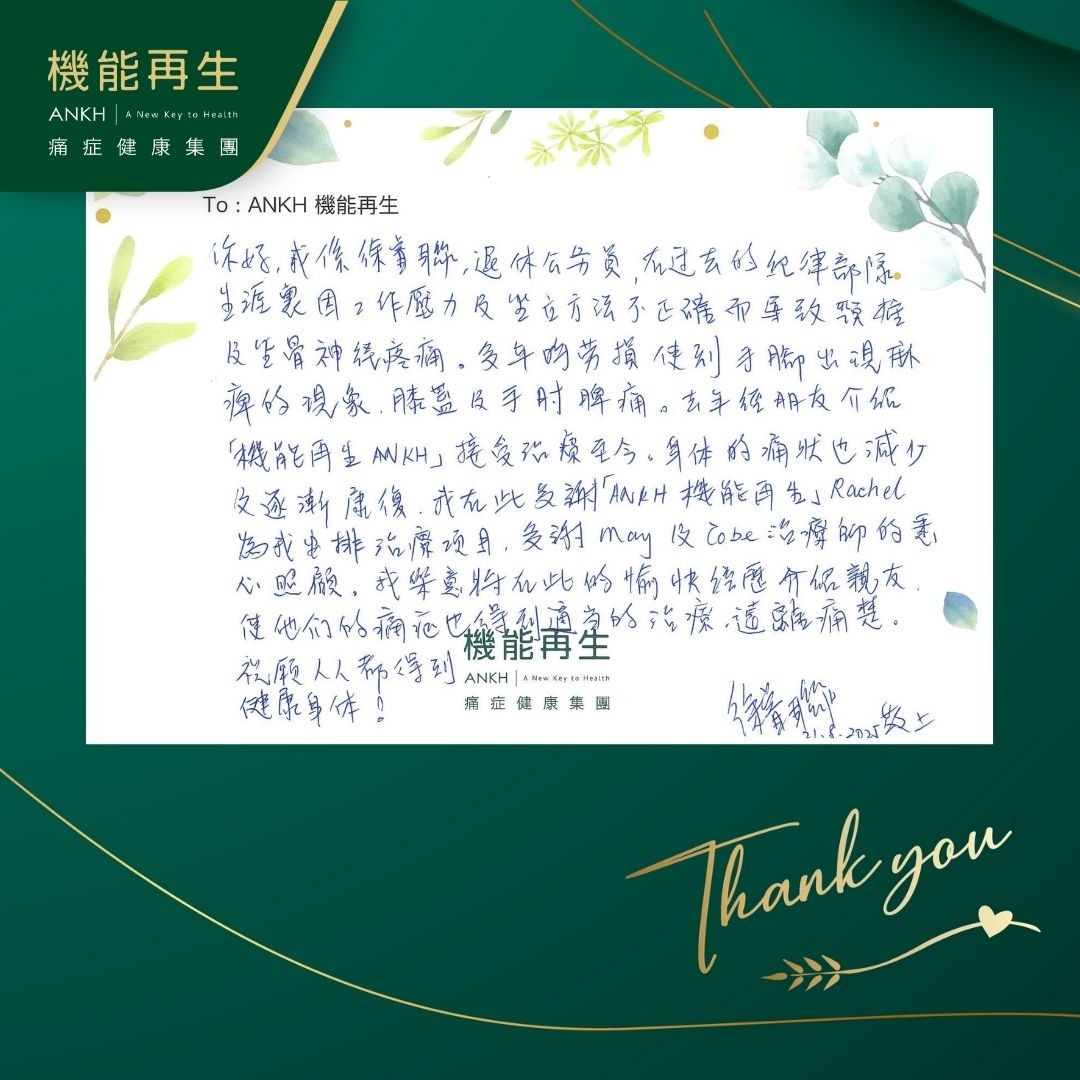 機能再生
ANKH | A New Key to Health
痛症健康集團
To : ANKH 機能再生
你好，我係徐睿聯，退休公务員，在过去的紀律部隊
生涯裏因工作壓力及坐立方法不正確而导致頸椎
及坐骨神經疼痛。多年的劳損使到手腳出現麻
痺的現象，膝蓋及手肘脾痛。去年經朋友介紹
「機能再生ANKH」接受治療至今。身体的痛狀也減少
及逐漸康復，我在此多謝「ANKH 機能再生」Rachel
為我安排治療項目，多謝 May 及 Cobe 治療师的悉
心照顧。我樂意將在此的愉快經歷介紹親友，
使他们的痛症也得到適当的治療，遠離痛楚。
祝願人人都得到
健康身体！
機能再生
ANKH | A New Key to Health
痛症健康集團
21.8.2025 敬上
Thank you